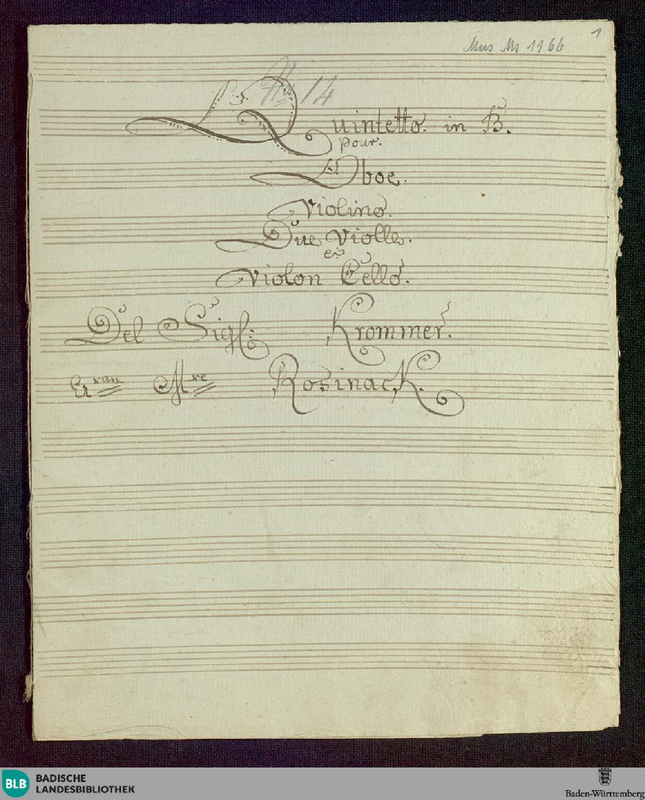 Mus Ms 1166
1
14
Quintetto. in B.
pour.
Oboe.
Violino.
Due Violle.
et
Violon Cello.
Del Sigl: Krommer.
Mre Rosinack.
BLB BADISCHE
LANDESBIBLIOTHEK
Baden-Württemberg